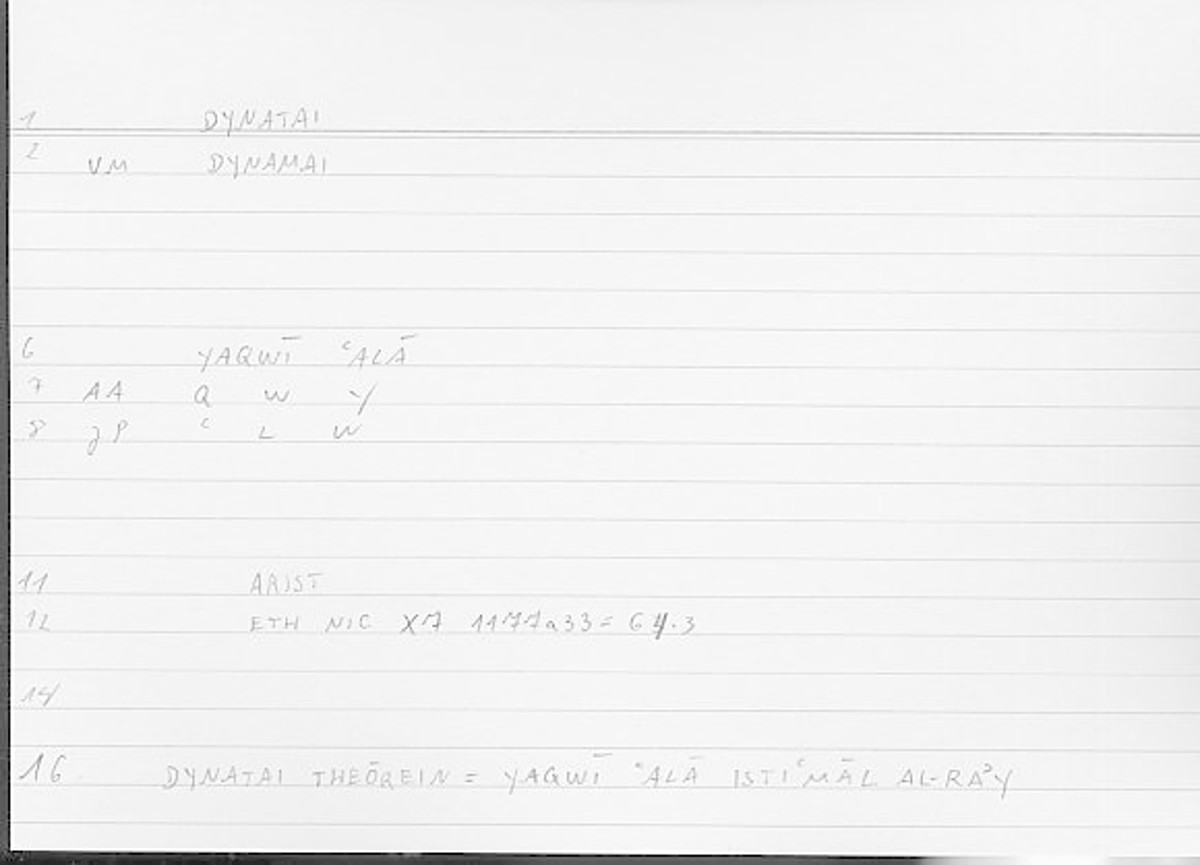 1 DYNATAI
2 VM DYNAMAI
6 YAQWĪ ʿALĀ
7 AA Q W Y
8 JP ʿ L W
11 ARIST
12 ETH NIC X7 1177a33 = 64.3
14
16 DYNATAI THEŌREIN = YAQWĪ ʿALĀ ISTIʿMĀL AL-RAʾY